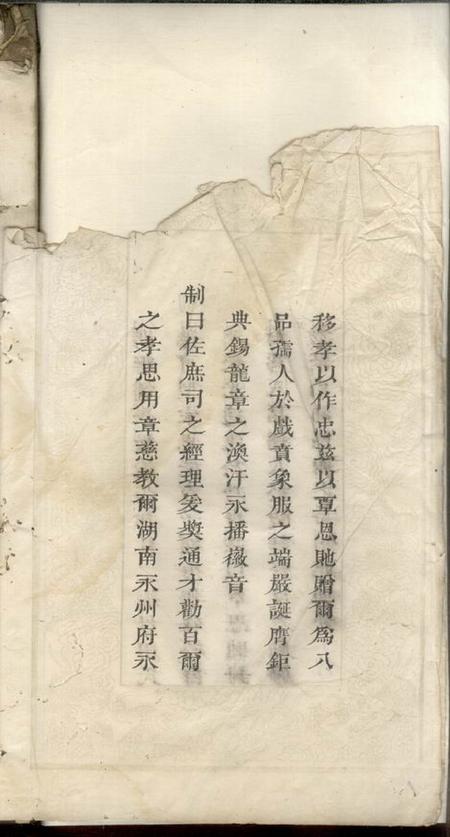 移孝以作忠茲以覃恩貤贈爾為八
品孺人於戲賁象服之端嚴誕膺鉅
典錫龍章之渙汗永播徽音
制曰佐庶司之經理爰獎通才勸百爾
之孝思用章慈教爾湖南永州府永